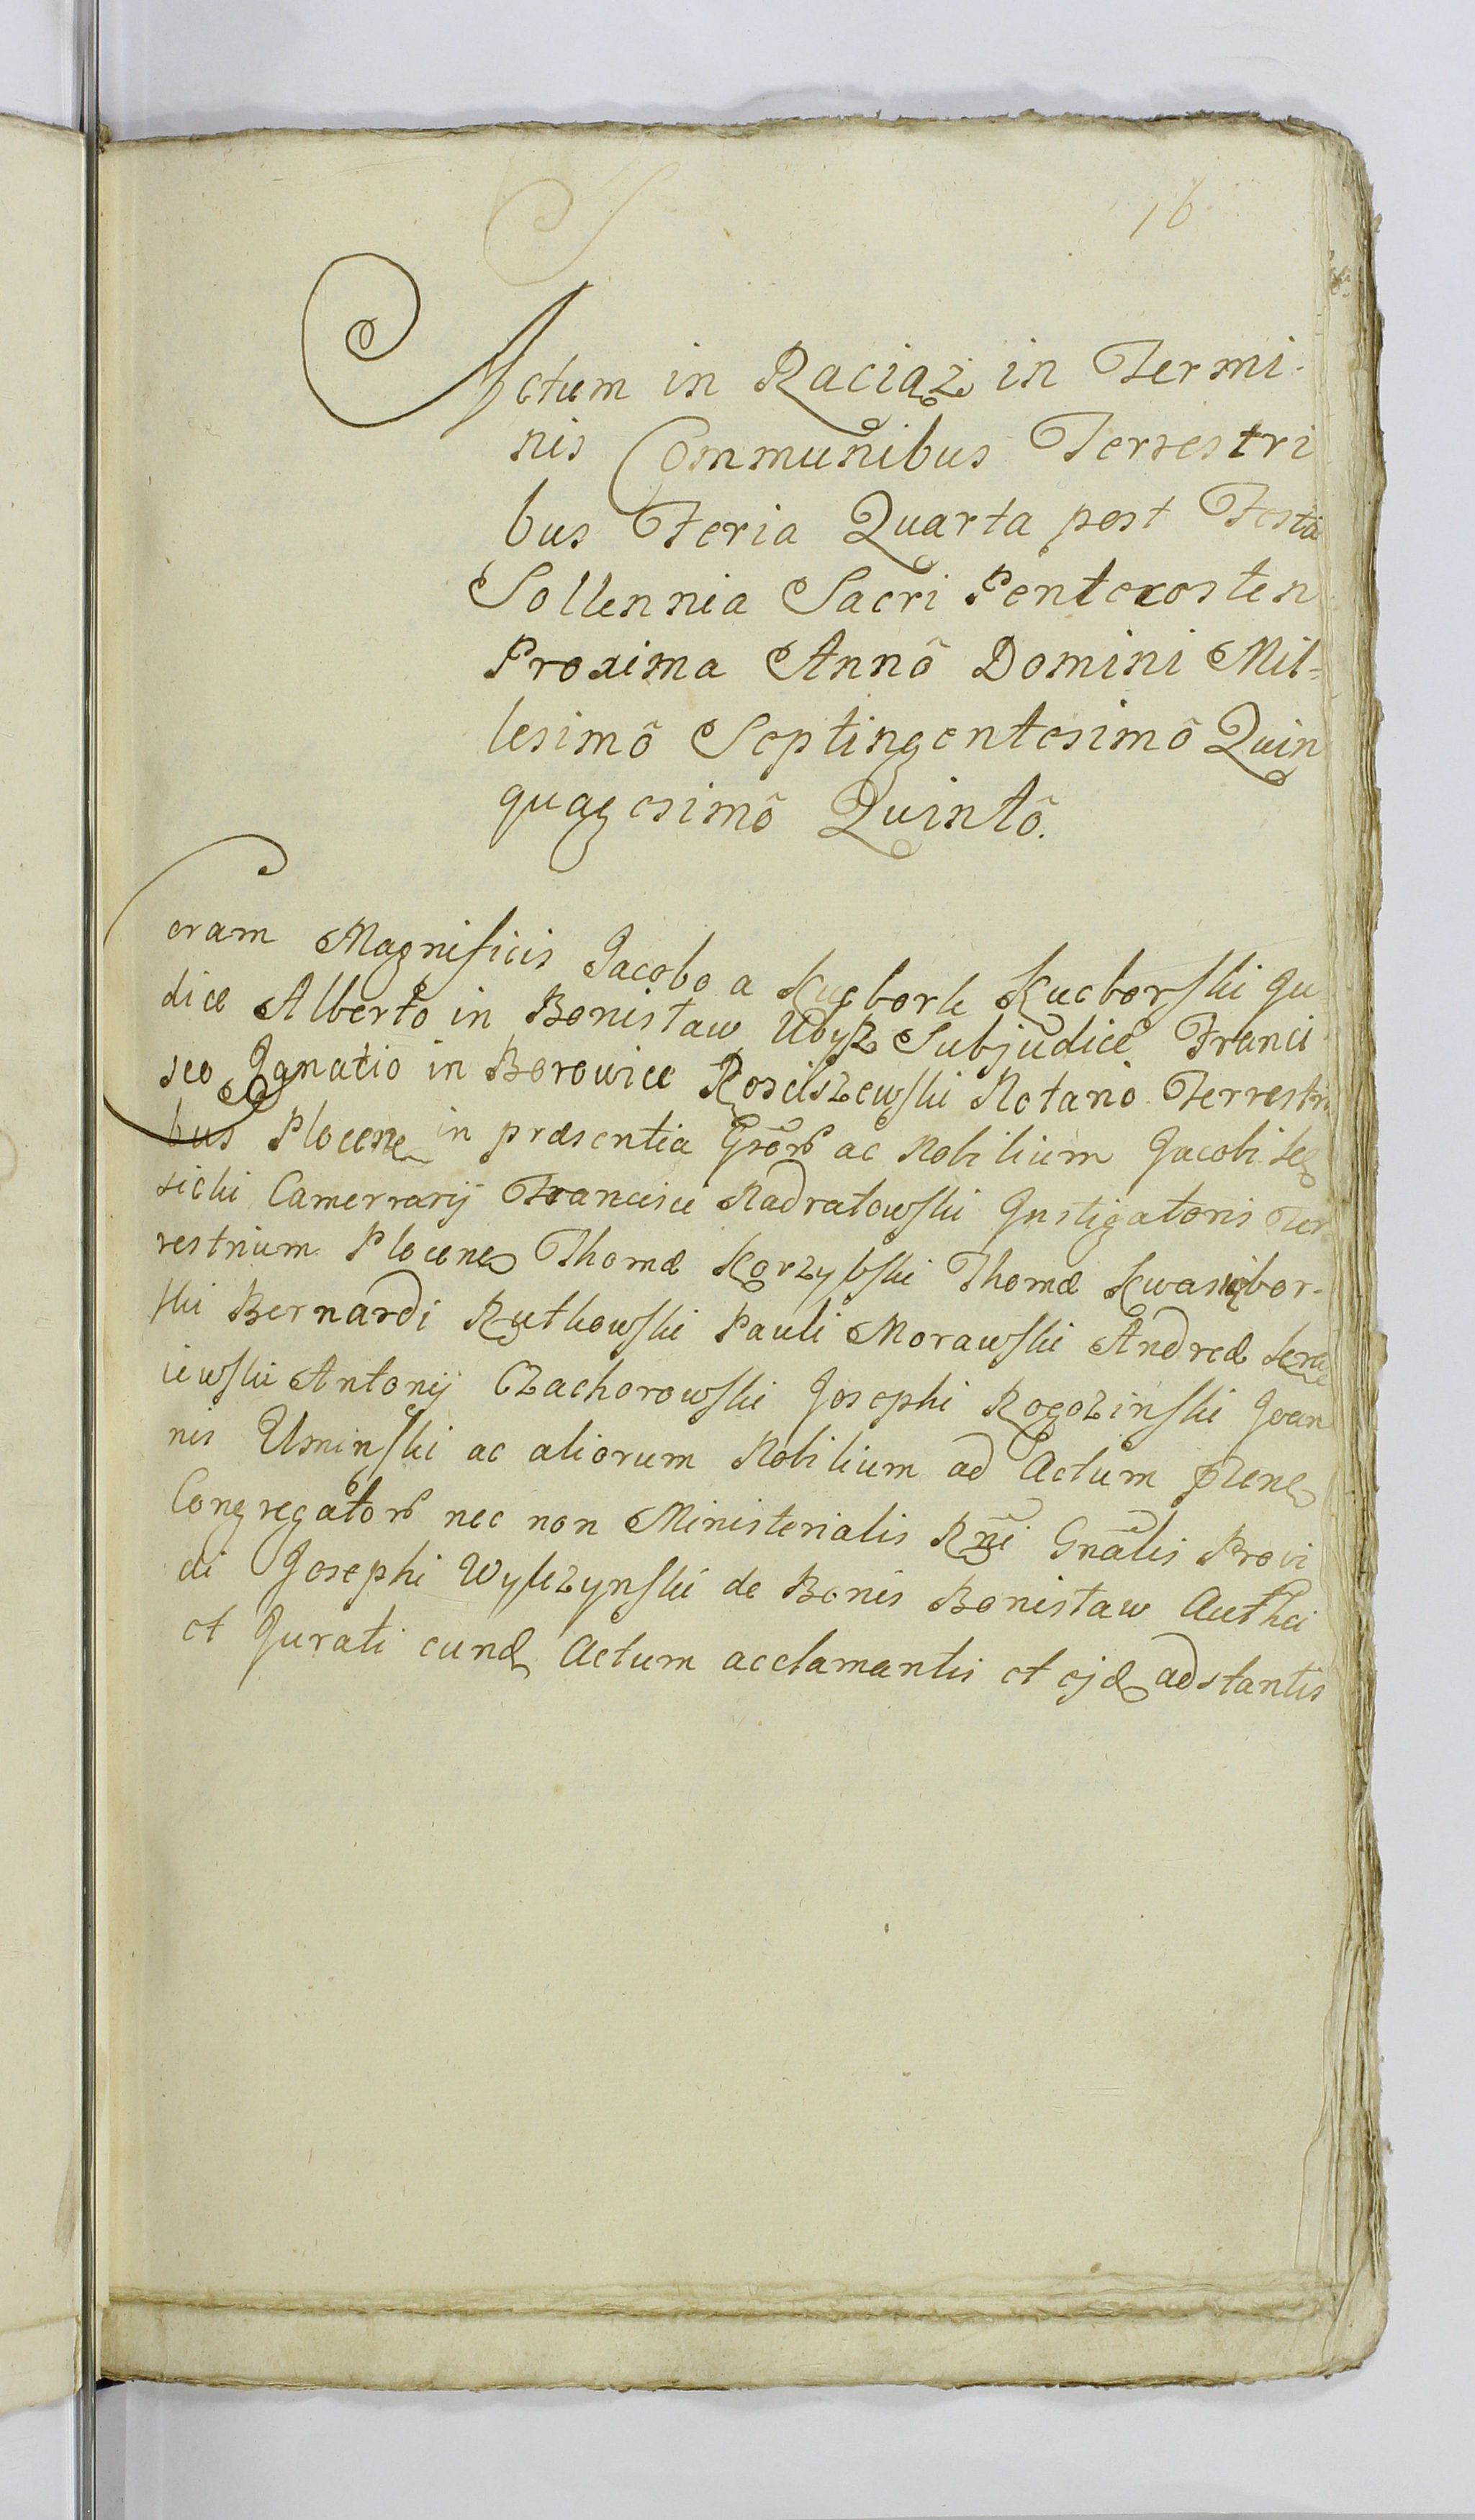 16
Actum in Raciąż in Termi-
nis Communibus Terrestri
bus Feria Quarta post Festa
Sollennia Sacri Pentecosten
Proxima Annô Domini Mil=
lesimô Septingentesimô Quin
quagesimô Quintô.
Coram Magnificis Jacobo a Kucbork Kucborski Ju
dice Alberto in Bonisław Ubysz Subjudice Franci
sco Ignatio in Borowice Rosciszewski Notario Terrestri
bus Plocen in præsentia Grõrꝭ ac Nobilium Jacobi
sicki Camerrarij Francisci Nadratowski Instigatoris Ter
restrium Plocen Thomæ Korzybski Thomæ Kwasibor-
ski Bernardi Rutkowski Pauli Morawski Andreæ
iewski Antonij Czachorowski Josephi Rogozinski Joan
nis Uminski ac aliorum Nobilium ad Actum pñen
Congregatorꝭ nec non Ministerialis Rñi Gnãlis Provi
di Josephi Wylczynski de Bonis Bonisław Authci
et Jurati eund Actum acclamantis et ejd adstantis